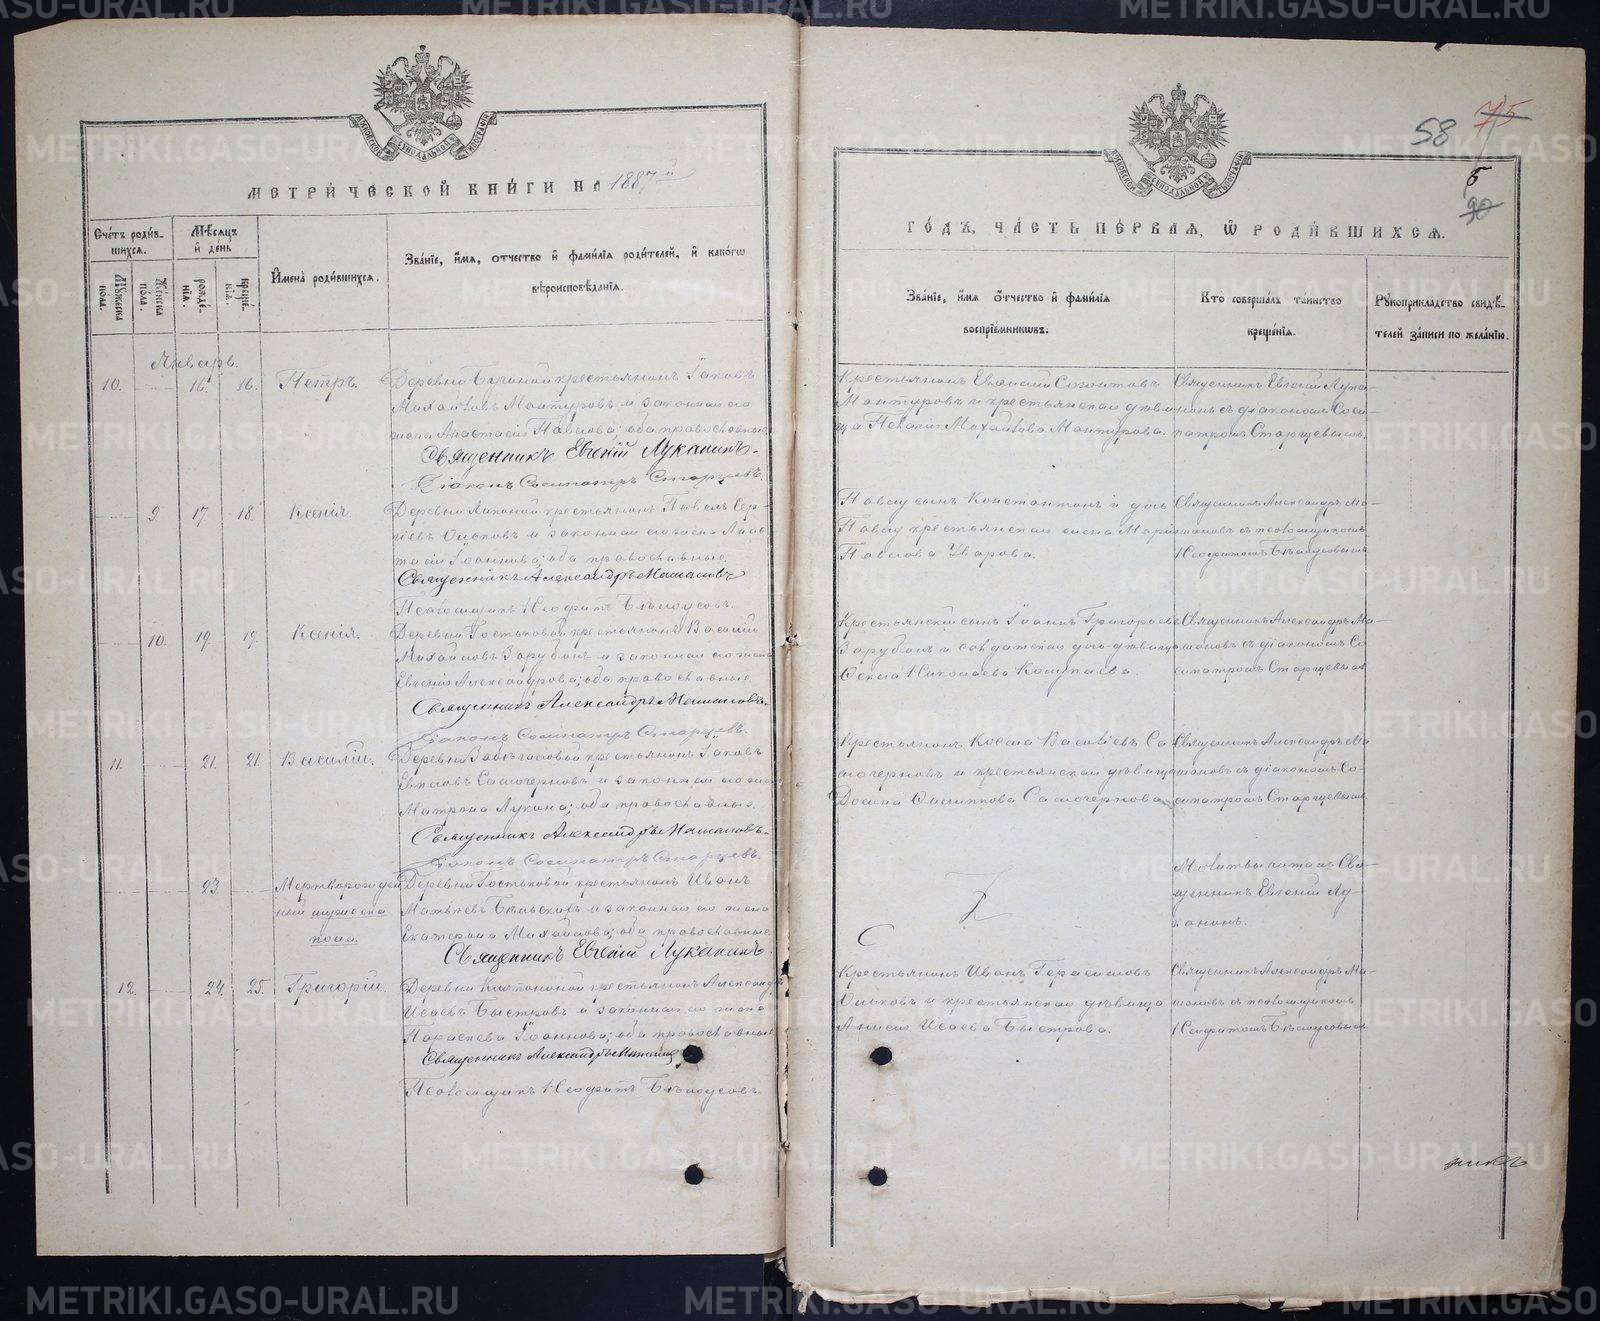 МЕТРИ́ЧЕСКОЙ КНИ́ГИ НА 1887й
Сче́тъ роди́в-
шихся.
Мѣ́сяцъ
и҆ де́нь
Мꙋ́жеска
по́ла.
Же́нска
по́ла.
рожде́-
нїѧ.
креще́-
нїѧ.
И҆мена̀ роди́вшихсѧ.
Зва́нїе, и҆́мѧ, ѻ҆́тчество и҆ фами́лїѧ роди́телей, и҆ како́гѡ
вѣроисповѣ́данїѧ.
Январь.
10. 16. 16. Петръ.
крестьянинъ Іаковъ
Михайловъ Мантуровъ и законная его
жена Анастасія Павлова; оба православные
Священникъ Евгеній Луканинъ
Діаконъ Сосипатръ Старцевъ.
9. 17. 18. Ксенія.
крестьянинъ Павелъ Сер-
гіевъ Ольковъ и законная его жена Анас-
тасія Іоаннова; оба православные
Священникъ Александръ
Псаломщикъ Неофитъ Бѣлоусовъ.
10. 19. 19. Ксенія.
Деревни Гостьковой крестьянинъ Василій
Михайловъ Зарубинъ и законная его жена
Евгенія Александрова; оба православные
Священникъ Александръ
Діаконъ Сосипатръ Старцевъ.
11. 21. 21. Василій.
крестьянинъ Іаковъ
Самочерновъ и законная его жена
Матрона Лукина; оба православные.
Священникъ Александръ
Діаконъ Сосипатръ Старцевъ.
23. Мертворожден-
ный мужеска
пола.
Деревни Гостьковой крестьянинъ Иванъ
Матвѣевъ Бѣльскихъ и законная его жена
Екатерина Михайлова; оба православные
Священникъ Евгеній Луканинъ.
12. 24. 25. Григорій.
крестьянинъ Александръ
Исаевъ Быстровъ и законная его жена
Параскева Іоаннова; оба православные
Священникъ Александръ
Псаломщикъ Неофитъ Бѣлоусовъ.
58 75
6
90
ГО́ДЪ, ЧА́СТЬ ПЕ́РВАѦ, Ѽ РОДИ́ВШИХСѦ.
Зва́нїе, и҆́мѧ ѻ҆́тчество и҆ фами́лїѧ
воспрїе́мникѡвъ.
Кто̀ соверша́лъ та́инство
креще́нїѧ.
Рꙋкоприкла́дство свидѣ́-
телей за́писи по жела́нїю.
Крестьянинъ Евсевій Созонтовъ
Мантуровъ и крестьянская дѣви-
ца Пелагія Михайлова Мантурова.
Священникъ Евгеній Лука-
нинъ съ діакономъ Соси-
патромъ Старцевымъ.
Павлу сынъ Константинъ и
Павлу крестьянская жена Марія
Павлова Уварова.
Священникъ Александръ Ма-
съ псаломщикомъ
Неофитомъ Бѣлоусовымъ
Крестьянскій сынъ Іоаннъ Григорьевъ
Зарубинъ и солдатская дочь дѣвица
Николаева Кокутаева.
Священникъ Александръ Ма-
съ діакономъ Со-
сипатромъ Старцевымъ
Крестьянинъ Косма Васильевъ Са-
мочерновъ и крестьянская дѣвица
Домна Филиппова Самочернова
Священникъ Александръ Ма-
съ діакономъ Со-
сипатромъ Старцевымъ
Молитвы читалъ Свя-
щенникъ Евгеній Лу-
канинъ.
Крестьянинъ Иванъ Герасимовъ
Ольковъ и крестьянская дѣвица
Анисія Исаева Быстрова.
Священникъ Александръ Ма-
съ псаломщикомъ
Неофитомъ Бѣлоусовымъ
никъ
METRIKI.GASO-URAL.RU